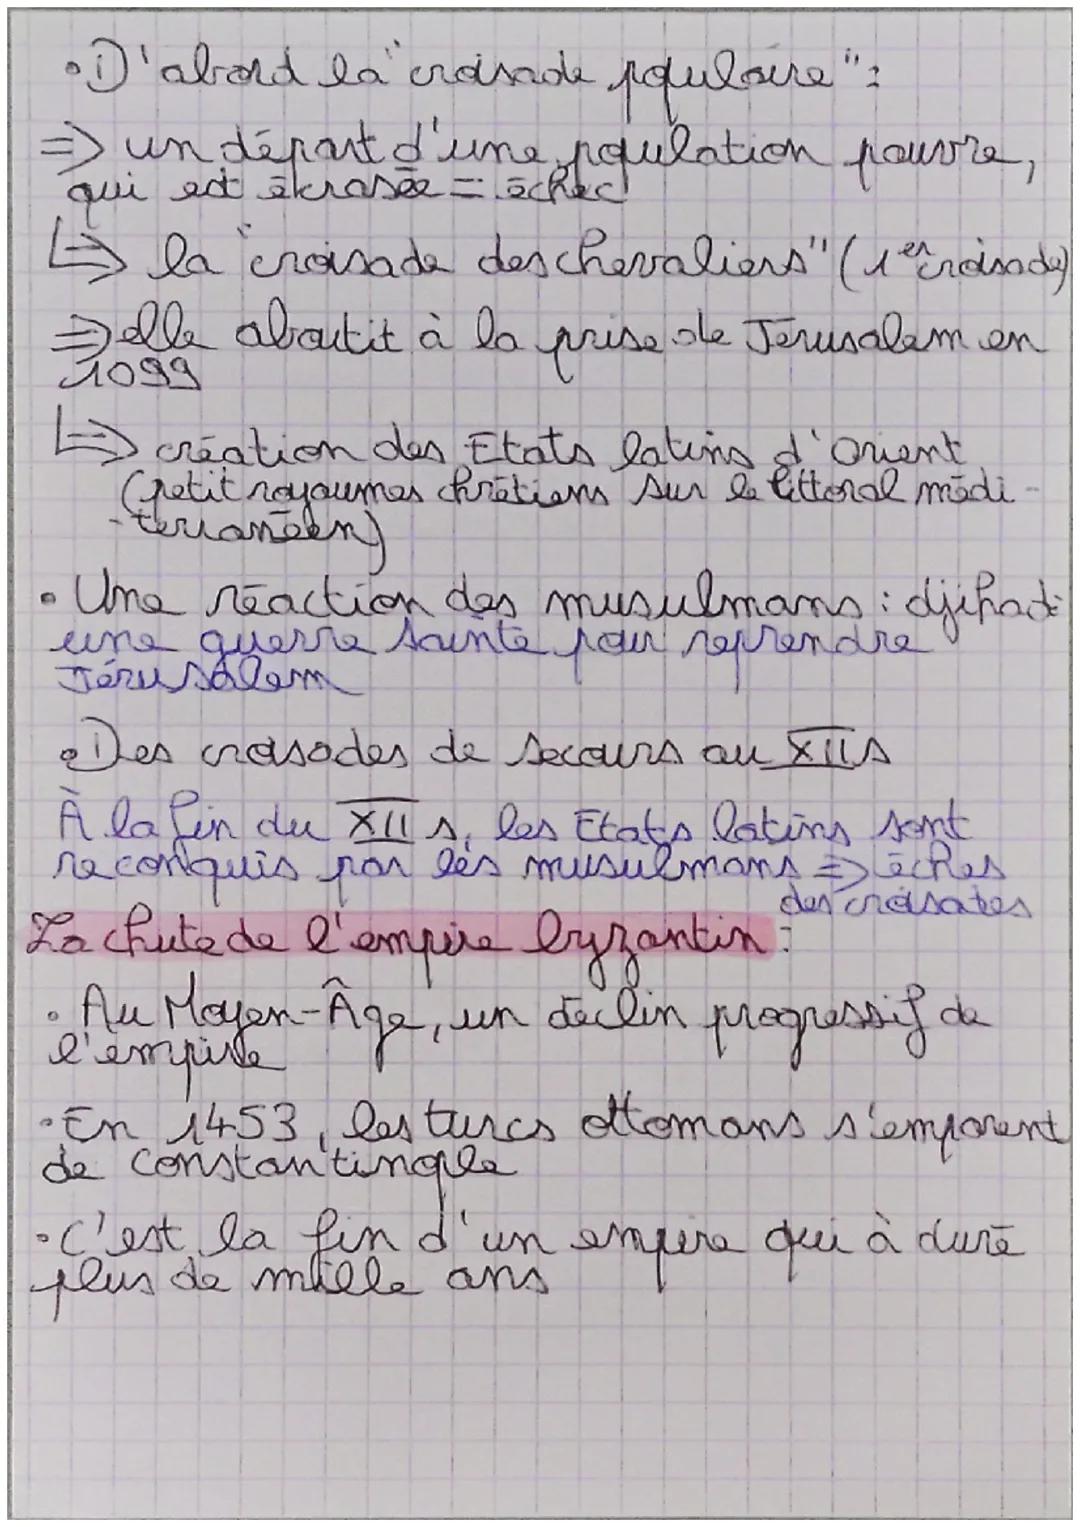 • D'abord la "croisade populaire" :
=> un départ d'une population pauvre,
qui est ékrasée = échec
↳> la "croisade des chevaliers" (1er croisade)
=> elle aboutit à la prise de Jérusalem en
1099
↳> création des Etats latins d'Orient
(petit royaumes chrétiens sur le littoral médi-
-terranéen)
• Une réaction des musulmans : djihad :
une guerre sainte pour reprendre
Jérusalem
• Des croisades de secours au XII s
À la fin du XII s, les Etats latins sont
reconquis par les musulmans => éches
des croisates
La chute de l'empire byzantin :
• Au Moyen-Âge, un déclin progressif de
l'empire
• En 1453, les turcs ottomans s'emparent
de constantinople
• C'est la fin d'un empire qui à duré
plus de mille ans